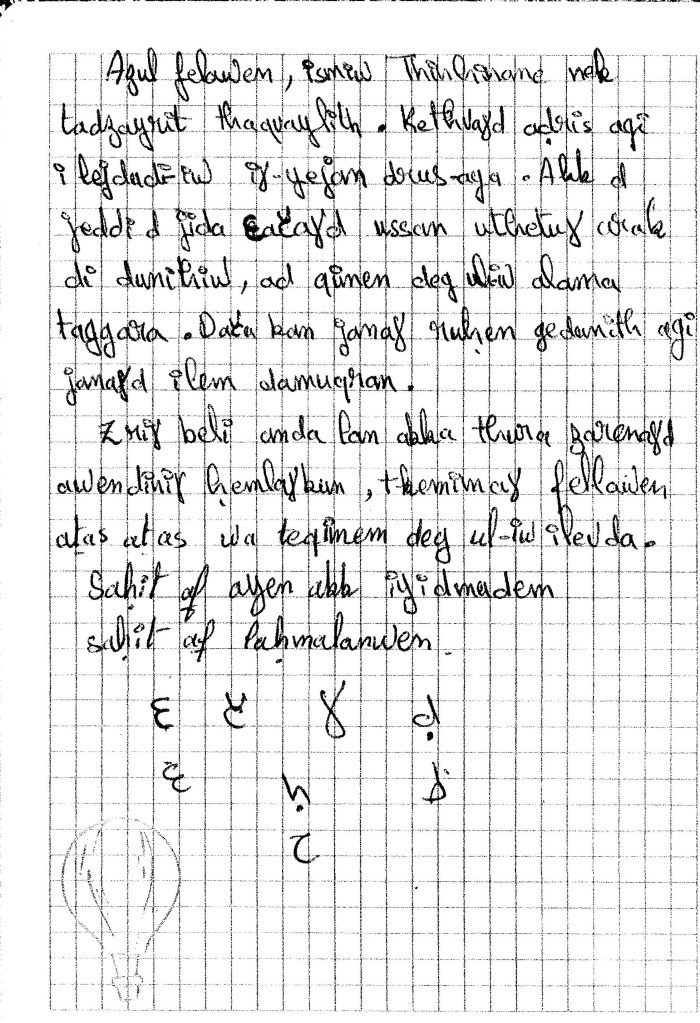 Azul felawen, ismiw Thinhinane nek
tadzayrit thaquaylith. Kethvaɣd aḍris agi
i lejdudi-iw iɣ-yejan drus-aya. Akk d
jeddi d jida ussan
di dunithiw, ad qimen deg uliw alama
taggara. kan janaɣ ruḥen gedunith agi
janaɣd ilem damuqran.
Zriɣ beli anda lan akka thura
awendiniɣ ḥemlaɣkun, themimaɣ fellawen
aṭas aṭas wa teqimem deg ul-iw ilevda.
Saḥit af ayen akk iyidmadem
saḥit af laḥmalanwen.
ع ɣ ḍ
ḥ
ح